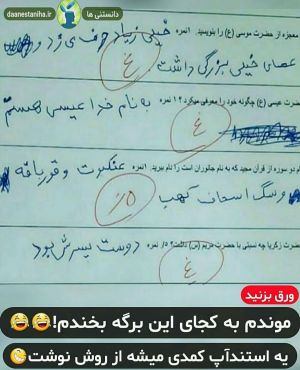 دانستنی ها
daanestaniha.ir
معجزه از حضرت موسی (ع) را بنویسید. ۱نمره خیلی زیاد حرف می زد و
عصای خیلی بزرگی داشت.
غ
حضرت عیسی (ع) چگونه خود را معرفی میکرد؟ ۱ نمره به نام خدا عیسی هستم
غ
نام دو سوره از قرآن مجید که به نام جانوران است را نام ببرید. ۱نمره عنکبوت و قورباقه
و سگ اصحاب کهب
۰/۵
حضرت زکریا چه نسبتی با حضرت مریم (س) داشت؟ ۰/۵ نمره دوست پسرش بود
غ
ورق بزنید
موندم به کجای این برگه بخندم!
یه استندآپ کمدی میشه از روش نوشت